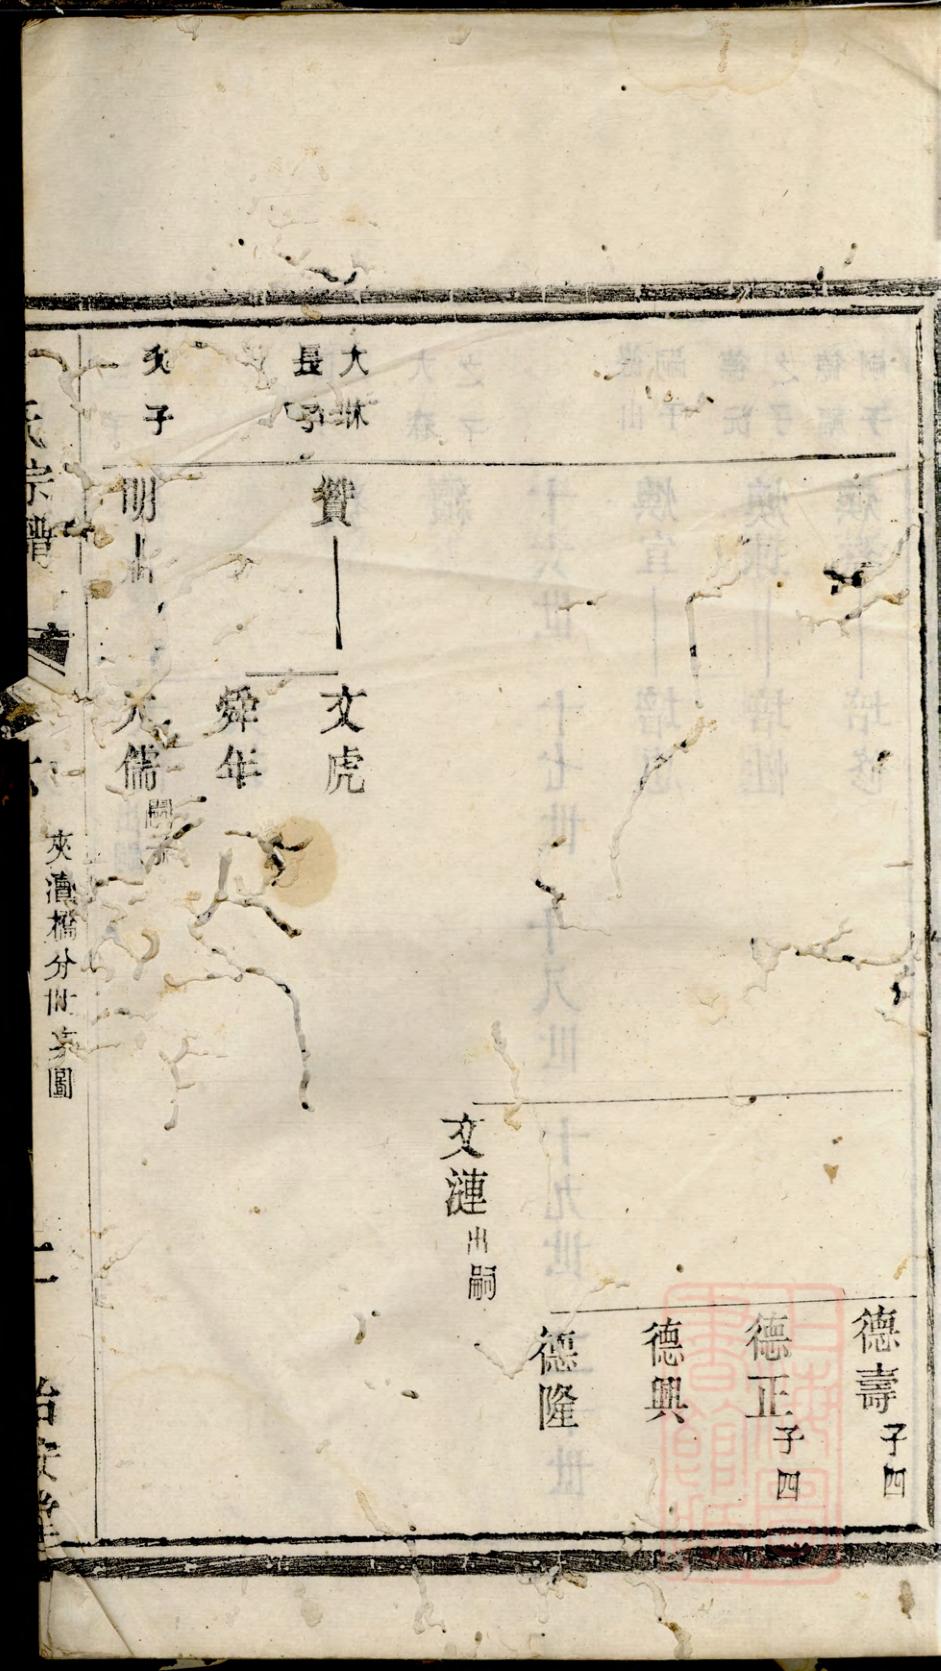 德壽子四
德正子四
德興
德隆
文漣出嗣
大琳
長子
贊
文虎
舜年
次子
明
儒嗣子
氏宗譜
夾瀆橋分世系圖
二
怡安堂